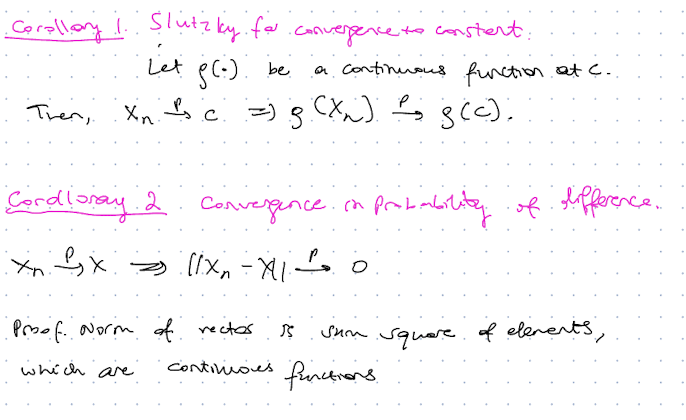 Corollary 1. Slutzky for convergence to constant
Let g(·) be a continuous function at c.
Then, Xn →^P c ⇒ g(Xn) →^P g(c).
Corollary 2 Convergence in probability of difference.
Xn →^P X ⇒ ||Xn - X|| →^P 0
Proof. Norm of vector is sum square of elements,
which are continuous functions